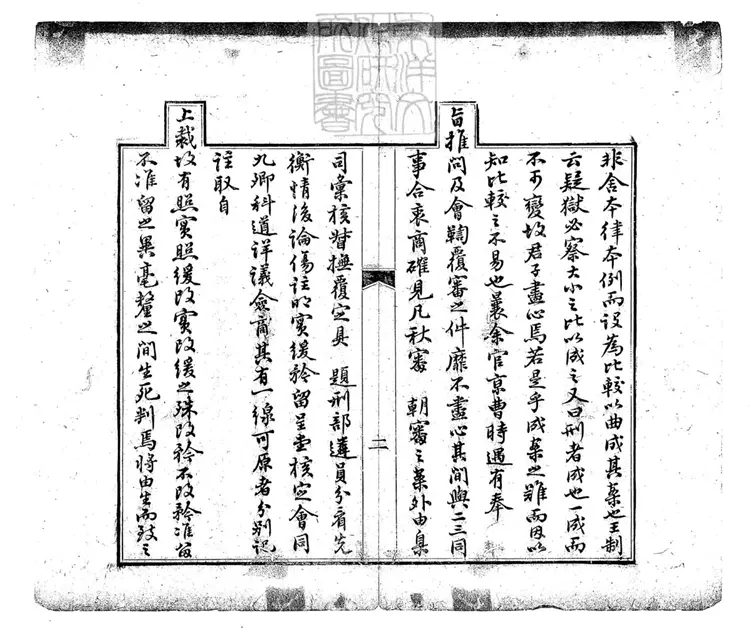 東洋文
化研究
所圖書
非舍本律本例而設為比較以曲成其案也王制
云疑獄必察大小之比以成之又曰刑者成也一成而
不可變故君子盡心焉若是乎成案之難而因以
知比較之不易也曩余官京曹時遇有奉
旨推問及會鞫覆審之件靡不盡心其間與二三同
事合衷商確見凡秋審 朝審之案外由臬
二
司彙核督撫覆定具 題刑部遴員分看先
衡情後論傷註明實緩矜留呈堂核定會同
九卿科道詳議僉商其有一線可原者分别記
註取自
上裁故有照實照緩改實改緩之殊改矜不改矜准留
不准留之異毫釐之間生死判焉將由生而致之